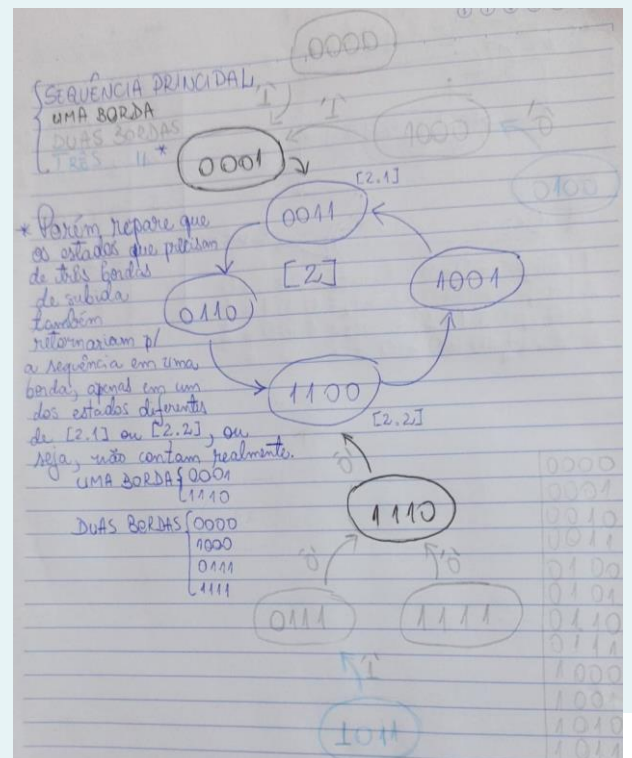 0000
{SEQUÊNCIA PRINCIPAL
UMA BORDA
DUAS BORDAS
TRÊS " *
'1'
'1'
1000
'0'
0100
0001
0011
[2.1]
* Porém, repare que
os estados que precisam
de três bordas
de subida
também
retornariam p/
a sequência em uma
borda, apenas em um
dos estados diferentes
de [2.1] ou [2.2], ou
seja, não contam realmente.
[2]
1001
0110
1100
[2.2]
UMA BORDA { 0001
1110
DUAS BORDAS { 0000
1000
0111
1111
'0'
1110
'0'
'0'
0111
1111
'1'
1011
0000
0001
0010
0011
0100
0101
0110
0111
1000
1001
1010
1011